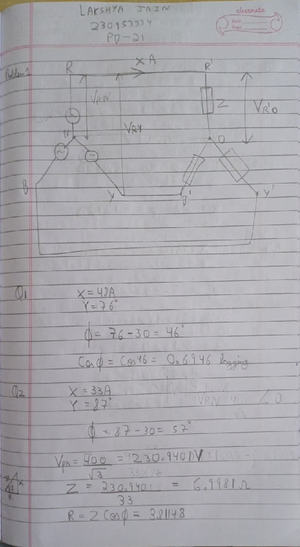 LAKSHYA JAIN
PD-21
classmate
Date
Page
Problem 1
R
X A
R'
VRN
VRY
Z
VR'O
N
O
B
Y
B'
Y'
Q1
X = 42A
Y = 76°
ϕ = 76-30 = 46°
Cosϕ = Cos46 = 0.6946 lagging
Q2
X = 33A
Y = 87°
ϕ = 87-30 = 57°
VPN = 400/√3 = 230.9401V
Z = 230.9401/33 = 6.9981Ω
R = Z Cosϕ = 3.81148